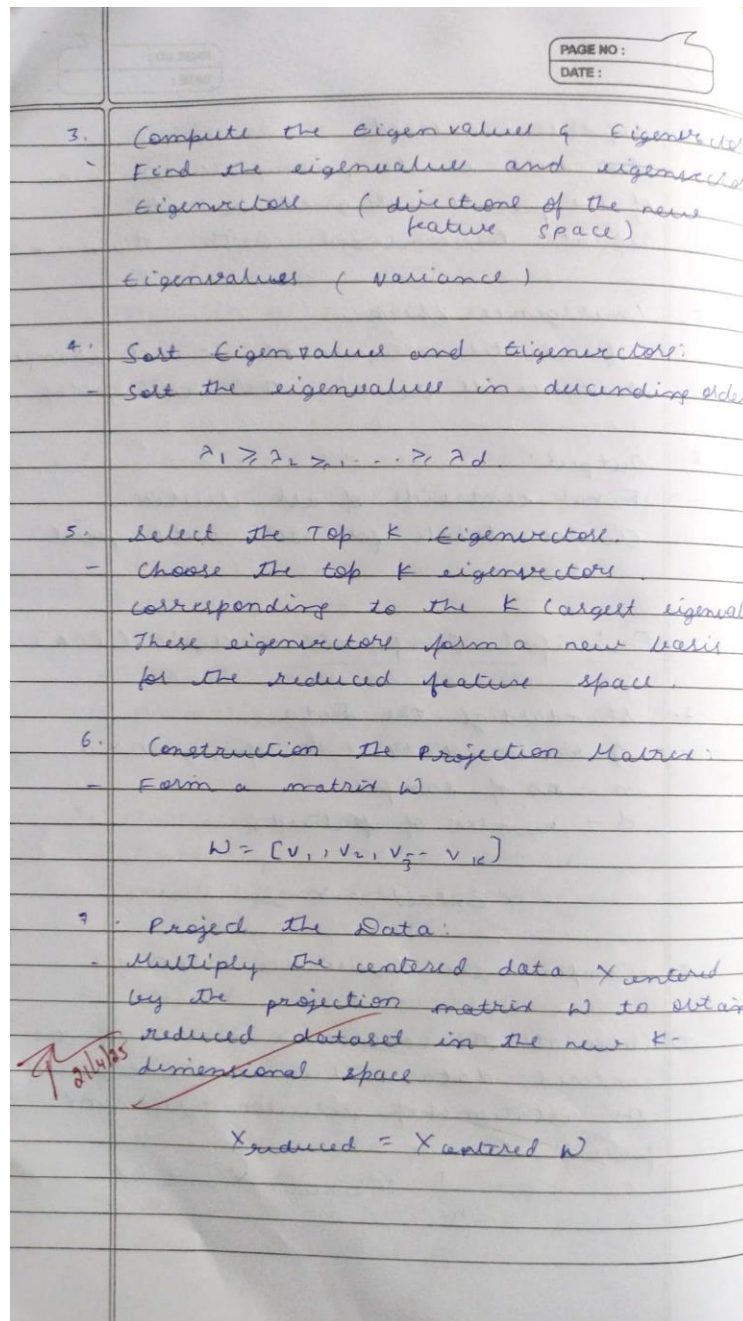 PAGE NO :
DATE :
3. Compute the Eigen values & Eigenvecto
- Find the eigenvalues and eigenvecto
Eigenvectors ( directions of the new
feature space )
Eigenvalues ( variance )
4. Sort Eigenvalues and Eigenvectors:
- Sort the eigenvalues in descending orde
λ1 ≥ λ2 ≥ , . . . ≥ λd
5. Select the Top K Eigenvectors.
- Choose the top K eigenvectors
corresponding to the K largest eigenval
These eigenvectors form a new basis
for the reduced feature space.
6. Construction the Projection Matrix:
- Form a matrix W
W = [V1, V2, V3 -- VK]
7. Project the Data:
- Multiply the centered data X centered
by the projection matrix W to obtain
reduced dataset in the new K-
dimensional space
21/4/25
X reduced = X centered W